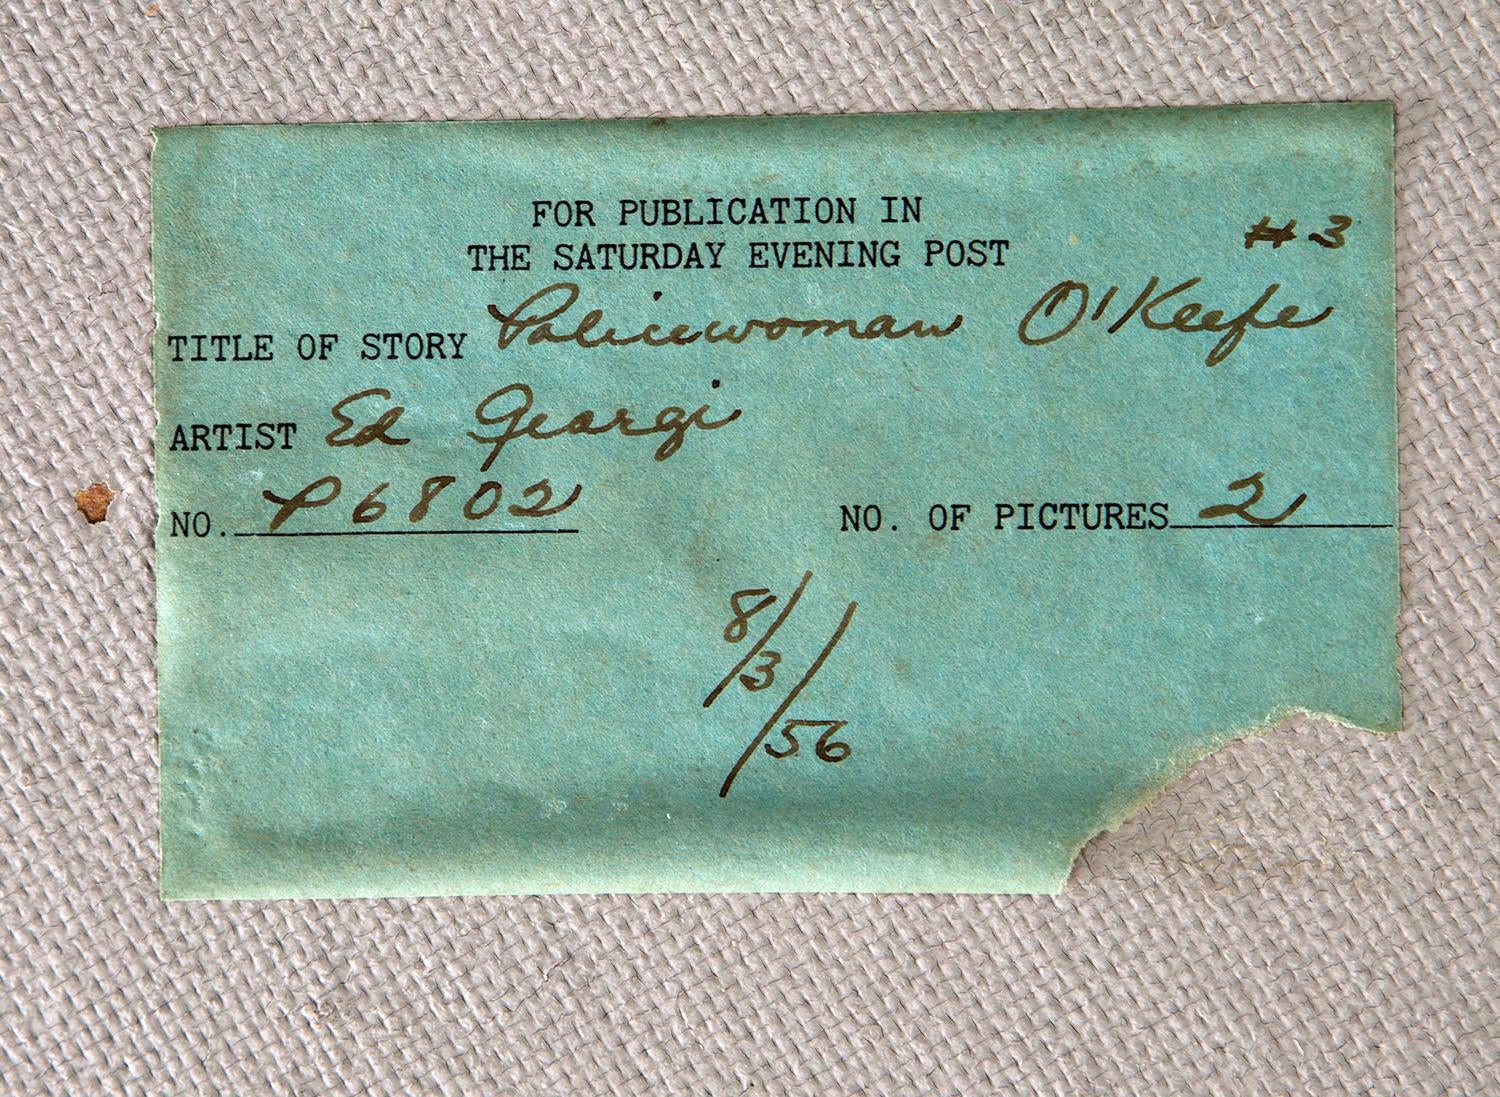 FOR PUBLICATION IN
THE SATURDAY EVENING POST
#3
TITLE OF STORY Policewoman O'Keefe
ARTIST Ed Georgi
NO. P6802 NO. OF PICTURES 2
8/3/56